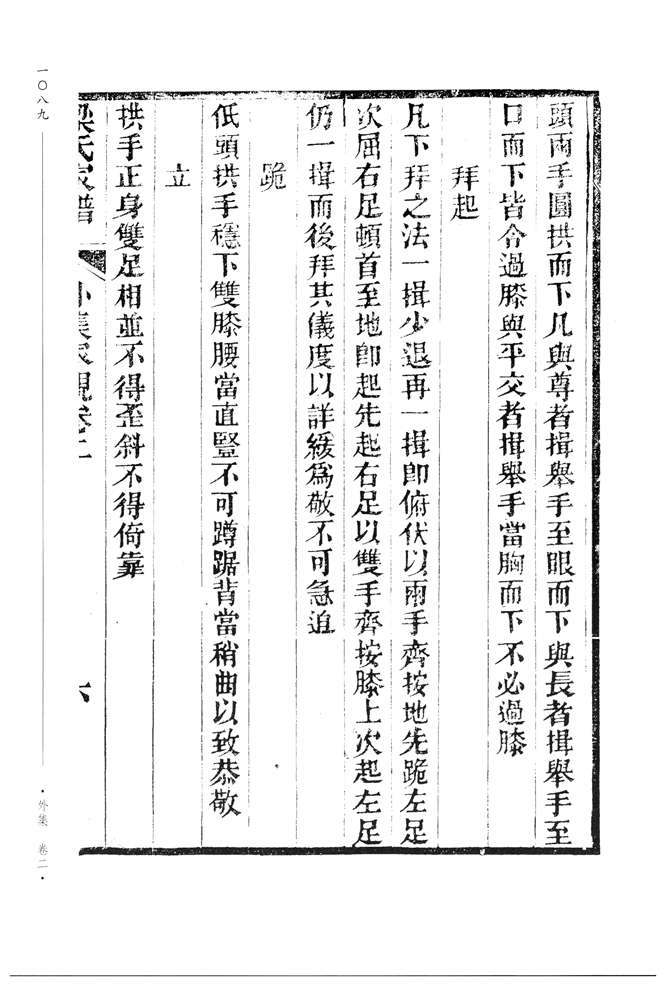 頭兩手圓拱而下凡與尊者揖舉手至眼而下與長者揖舉手至
口而下皆令過膝與平交者揖舉手當胸而下不必過膝
拜起
凡下拜之法一揖少退再一揖卽俯伏以兩手齊按地先跪左足
次屈右足頓首至地卽起先起右足以雙手齊按膝上次起左足
仍一揖而後拜其儀度以詳緩爲敬不可急迫
跪
低頭拱手穩下雙膝腰當直豎不可蹲踞背當稍曲以致恭敬
立
拱手正身雙足相並不得歪斜不得倚靠
梁氏家譜
外集家規卷二
六
一〇八九
·外集 卷二·